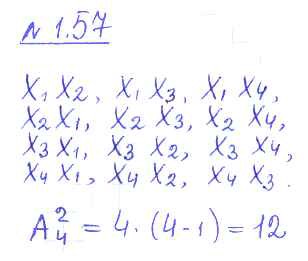 № 1.57
X₁ X₂, X₁ X₃, X₁ X₄,
X₂ X₁, X₂ X₃, X₂ X₄,
X₃ X₁, X₃ X₂, X₃ X₄,
X₄ X₁, X₄ X₂, X₄ X₃.
A₄² = 4·(4-1) = 12